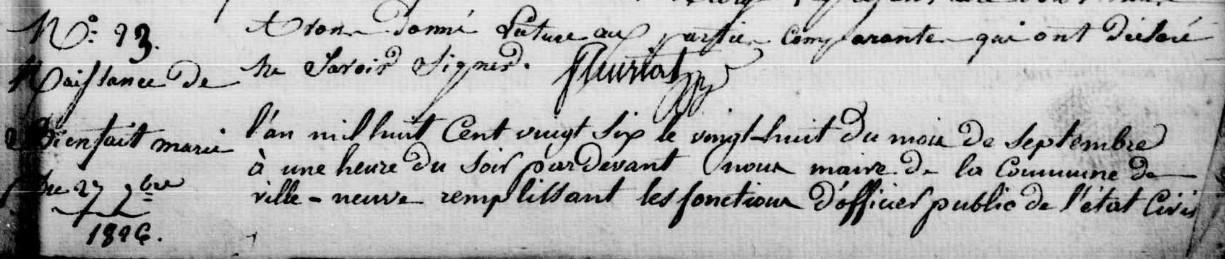 N.º 23.
Naissance de
Bienfait marie
du 27 7bre
1826.
et Donné Lecture aux parties Comparantes qui ont déclaré
ne Savoir Signer. fleuriat
l'an mil huit Cent vingt Six le vingt-huit du mois de Septembre
à une heure du Soir pardevant nous maire de la Commune de
ville-neuve remplissant les fonctions d'officier public de l'état Civil